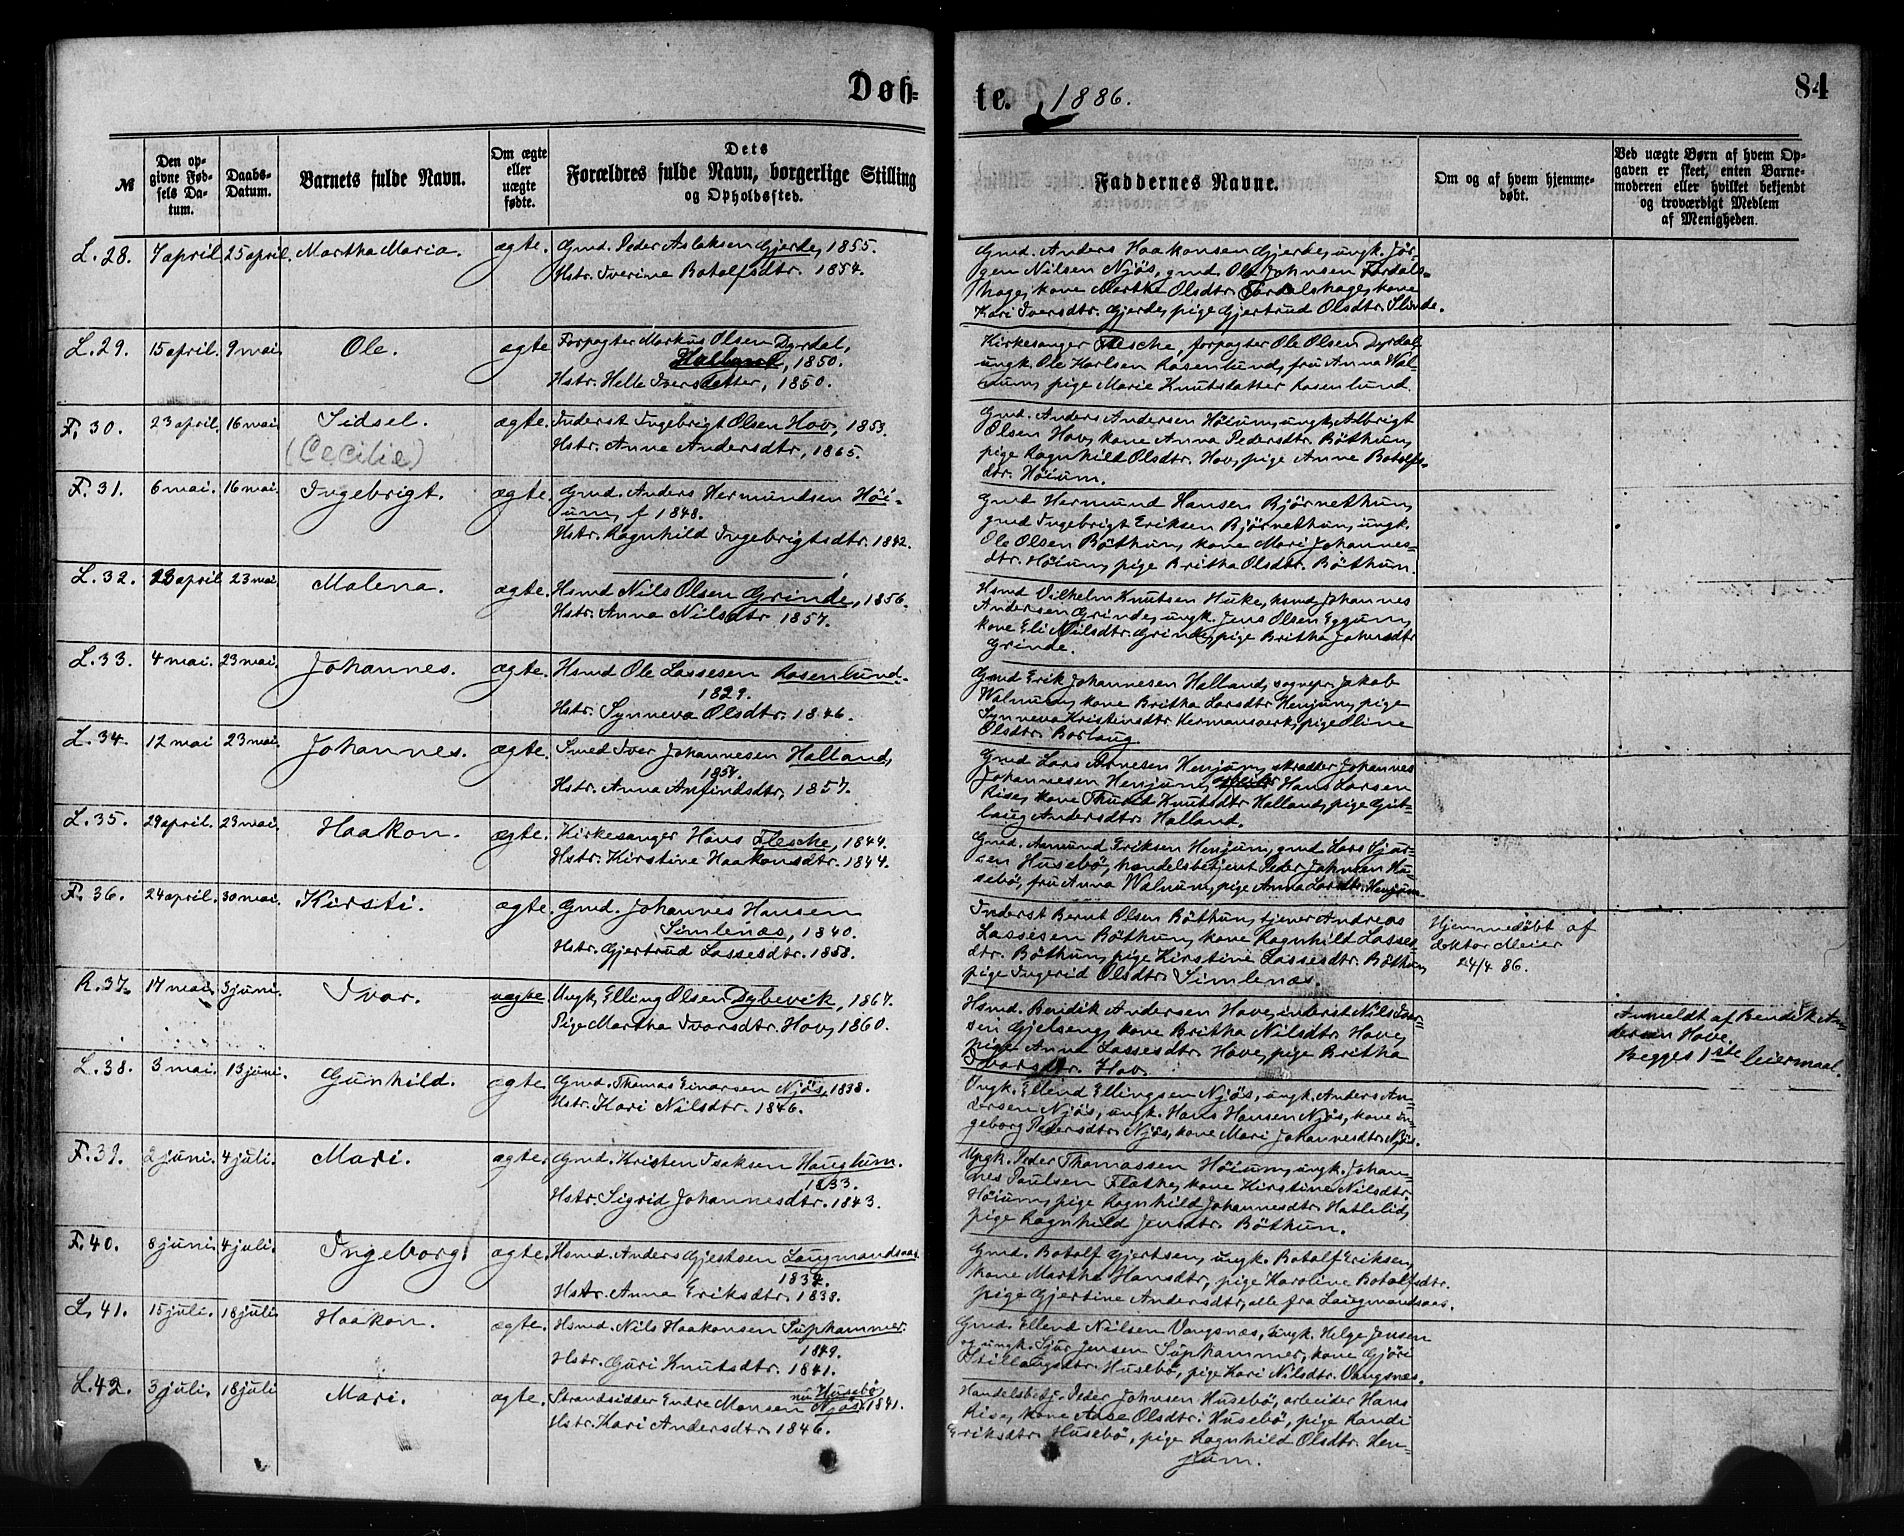 Døb=
te. 1886.
84
№
Den op-
givne Fød-
sels Da-
tum.
Daabs-
Datum.
Barnets fulde Navn.
Om ægte
eller
uægte
fødte.
Dets
Forældres fulde Navn, borgerlige Stilling
og Opholdssted.
Faddernes Navne.
Om og af hvem hjemme-
døbt.
Ved uægte Børn af hvem Op-
gaven er skeet, enten Barne-
moderen eller hvilket bekjendt
og troværdigt Medlem
af Menigheden.
L. 28. 7 april 25 april. Martha Maria. ægte. Gmd. Peder Aslaksen Gjerde, 1855.
Hstr. Iverine Botolfsdtr. 1854.
Gmd. Anders Haakonsen Gjerde, ungk. Jør-
gen Nilsen Njøs, gmd. Ole Johnsen Fardals-
hage, kone Marthe Olsdtr. Fardalshage, kone
Kari Iversdtr. Gjerde, pige Gjertrud Olsdtr. Slinde.
L. 29. 15 april. 9 mai Ole. ægte Forpagter Markus Olsen Dyrdal,
Halland, 1850.
Hstr. Helle Iversdatter, 1850.
Kirkesanger Flesche, forpagter Ole Olsen Dyrdal,
ungk. Ole Karlsen Rosenlund, fru Anna Wal-
num, pige Marie Knutsdatter Rosenlund.
F. 30. 23 april. 16 mai Sidsel. ægte. Inderst Ingebrigt Olsen Hov, 1853.
(Cecilie)
Hstr. Anne Andersdtr, 1865.
Gmd. Anders Andersen Höium, ungk. Albrigt
Olsen Hov, kone Anna Pedersdtr. Böthun,
pige Ragnhild Olsdtr. Hov, pige Anne Botolfs-
dtr. Höium.
F. 31. 6 mai. 16 mai. Ingebrigt. ægte. Gmd. Anders Hermundsen Höi-
um, f 1848.
Hstr. Ragnhild Ingebrigtsdtr. 1842.
Gmd Hermund Hansen Bjørnethun,
gmd Ingebrigt Eriksen Bjørnethun, ungk.
Ole Olsen Böthun, kone Mari Johannes-
dtr. Höium, pige Britha Olsdtr. Böthun.
L. 32. 23 april 23 mai. Malena. ægte. Hsmd Nils Olsen Grinde, 1856.
Hstr. Anna Nilsdtr 1857.
Hsmd Vilhelm Knutsen Huke, hsmd Johannes
Andersen Grinde, ungk. Jens Olsen Eggum,
kone Eli Nilsdtr. Grinde, pige Britha Johnsdtr
Grinde.
L. 33. 4 mai. 23 mai. Johannes. ægte. Hsmd Ole Lassesen Rosenlund.
1829.
Hstr. Synneva Olsdtr. 1846.
Gmd Erik Johannesen Halland, sognepr. Jakob
Walnum, kone Britha Larsdtr Henjum, pige
Synneva Kristensdtr Hermansverk, pige Oline
Olsdtr. Borlaug
L. 34. 12 mai 23 mai. Johannes. ægte. Smed Iver Johannesen Halland,
1854.
Hstr. Anna Anfindsdtr, 1857.
Gmd Lars Arnesen Henjum, skrædder Johannes
Johannesen Henjum, arbeider Hans Larsen
Rise, kone Thurid Knutsdtr Halland, pige Gut-
laug Andersdtr. Halland.
L. 35. 29 april. 23 mai. Haakon. ægte. Kirkesanger Hans Flesche, 1844.
Hstr. Kirstine Haakonsdtr. 1844.
Gmd. Asmund Eriksen Henjum, gmd Lars Sjur-
sen Husebö, handelsbetjent Peder Johnsen Hu-
sebö, fru Anna Walnum, pige Anna Larsdtr. Henjum
F. 36. 24 april. 30 mai. Kirsti. ægte. Gmd. Johannes Hansen
Simlenæs, 1840.
Hstr. Gjertrud Lassesdtr. 1858.
Inderst Bernt Olsen Böthun, tjener Andreas
Lassesen Böthun, kone Ragnhild Lasses-
dtr. Böthun, pige Kirstine Lassesdtr. Böthun,
pige Ingerid Olsdtr. Simlenæs.
Hjemmedöbt af
doktor Meier
24/4 86.
R. 37. 17 mai. 3 juni. Ivar. uægte. Ungk. Elling Olsen Dybevik, 1867.
Pige Martha Ivarsdtr. Hov, 1860.
Hsmd. Bendik Andersen Hove, inderst Nils Iver-
sen Gjelseng, kone Britha Nilsdtr. Hove,
pige Anna Lassesdtr. Hove, pige Britha
Ivarsdtr. Hov.
Anmeldt af Bendik An-
dersen Hove.
Begges 1ste leiermaal.
L. 38. 3 mai. 13 juni. Gunhild. ægte. Gmd. Thomas Einarsen Njös, 1838.
Hstr. Kari Nilsdtr. 1846.
Ungk. Ellend Ellingsen Njös, ungk. Anders An-
dersen Njös, ungk. Hans Hansen Njös, kone In-
geborg Pedersdtr. Njös, kone Mari Johannesdtr. Njös.
F. 39. 2 juni. 4 juli. Mari. ægte. Gmd. Kristen Isaksen Hauglum.
1833.
Hstr. Sigrid Johannesdtr. 1843.
Ungk. Peder Thomassen Höium, ungk. Johan-
nes Paulsen Flathe, kone Kirstine Nilsdtr.
Höium, pige Ragnhild Johannesdtr. Hatlelid,
pige Ragnhild Jensdtr. Böthun.
F. 40. 8 juni. 4 juli. Ingeborg. ægte. Hsmd. Anders Gjertsen Laugmandsaas.
1834.
Hstr. Anna Eriksdtr. 1838.
Gmd. Botolf Gjertsen, ungk. Botolf Eriksen,
kone Martha Hansdtr, pige Karoline Botolfsdtr.
pige Gjertine Andersdtr, alle fra Laugmandsaas.
L. 41. 15 juli. 18 juli. Haakon. ægte. Hsmd. Nils Haakonsen Suphammer.
1849.
Hstr. Guri Knutsdtr. 1841.
Gmd. Ellend Nilsen Vangsnæs, ungk. Helge Jensen
og ungk. Sjur Jensen Suphammer, kone Gjöri
Husebö, pige Kari Nilsdtr. Vangsnæs.
L. 42. 3 juli. 18 juli Mari. ægte. Strandsidder Endre Monsen Njös, 1841.
nu Husebö
Hstr. Kari Andersdtr. 1846.
Handelsbetj. Peder Johnsen Husebö, arbeider Hans
Rise, kone Anne Olsdtr. Husebö, pige Randi
Eriksdtr. Husebö, pige Ragnhild Olsdtr. Hen-
jum.